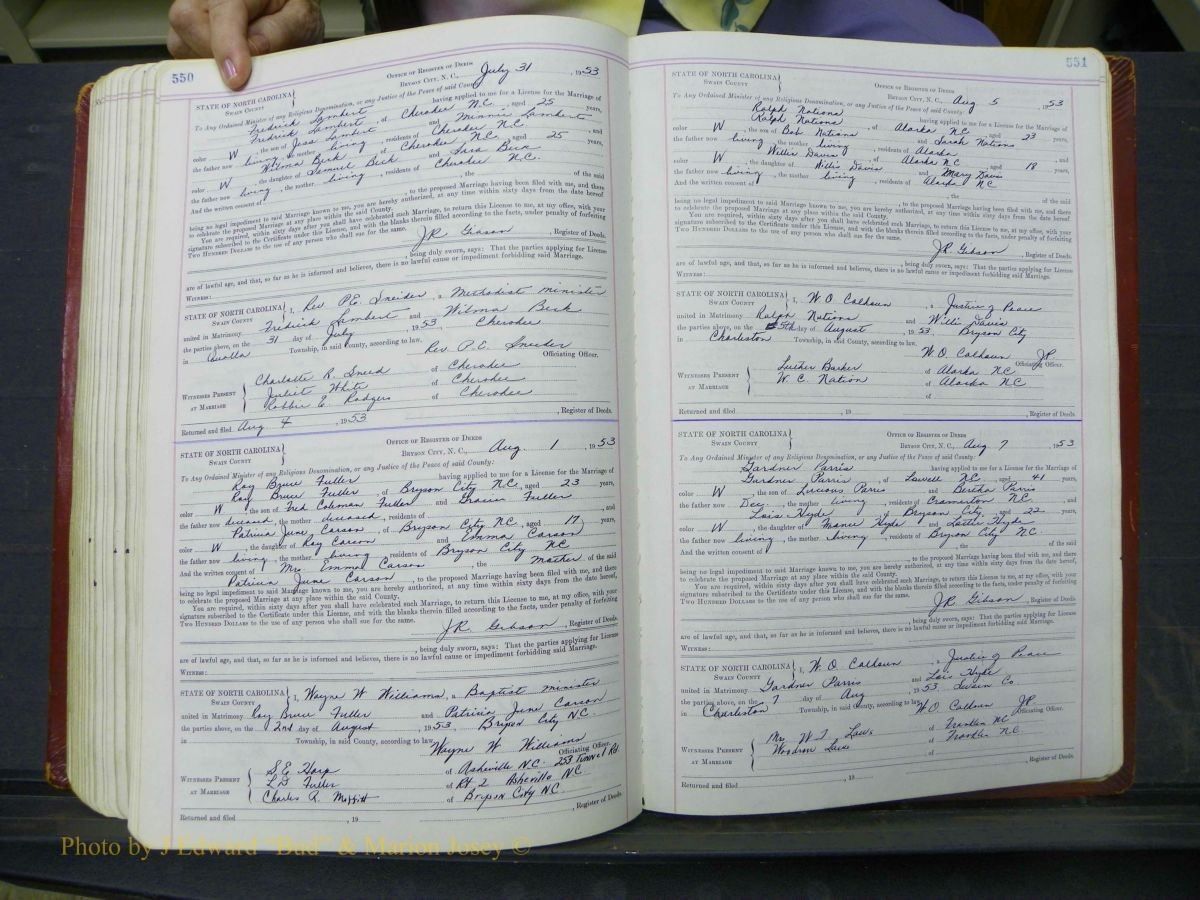 550
OFFICE OF REGISTER OF DEEDS
STATE OF NORTH CAROLINA
SWAIN COUNTY
BRYSON CITY, N. C., July 31, 1953
To Any Ordained Minister of any Religious Denomination, or any Justice of the Peace of said County:
Fredrick Lambert having applied to me for a License for the Marriage of
Fredrick Lambert, of Cherokee N.C., aged 25 years,
color W, the son of Jess Lambert and Minnie Lambert, and
the father now living, the mother living, residents of Cherokee N.C.
Wilma Beck of Cherokee N.C., aged 25 years,
color W, the daughter of Samuel Beck and Sara Beck
the father now living, the mother living, residents of Cherokee N.C.
And the written consent of , the of the said
, to the proposed Marriage having been filed with me, and there
being no legal impediment to said Marriage known to me, you are hereby authorized, at any time within sixty days from the date hereof
to celebrate the proposed Marriage at any place within the said County.
You are required, within sixty days after you shall have celebrated such Marriage, to return this License to me, at my office, with your
signature subscribed to the Certificate under this License, and with the blanks therein filled according to the facts, under penalty of forfeiting
TWO HUNDRED DOLLARS to the use of any person who shall sue for the same.
J.R. Gibson, Register of Deeds.
, being duly sworn, says: That the parties applying for License
are of lawful age, and that, so far as he is informed and believes, there is no lawful cause or impediment forbidding said Marriage.
WITNESS:
STATE OF NORTH CAROLINA
SWAIN COUNTY
I, Rev P.E. Sneider, a Methodist minister
united in Matrimony Fredrick Lambert and Wilma Beck
the parties above, on the 31 day of July, 1953, Cherokee
in Qualla Township, in said county, according to law.
Rev P.E. Sneider
Officiating Officer.
WITNESSES PRESENT AT MARRIAGE
Charlotte R. Sneed of Cherokee
Juliet White of Cherokee
Robbie E. Rodgers of Cherokee
Returned and filed Aug 4, 1953 , Register of Deeds.
OFFICE OF REGISTER OF DEEDS
STATE OF NORTH CAROLINA
SWAIN COUNTY
BRYSON CITY, N. C., Aug 1, 1953
To Any Ordained Minister of any Religious Denomination, or any Justice of the Peace of said County:
Roy Bruce Fuller having applied to me for a License for the Marriage of
Roy Bruce Fuller, of Bryson City N.C., aged 23 years,
color W, the son of Fred Coleman Fuller and Gracie Fuller
the father now deceased, the mother deceased, residents of , and
Patricia June Carson, of Bryson City N.C., aged 17 years,
color W, the daughter of Roy Carson and Emma Carson
the father now living, the mother living, residents of Bryson City N.C.
And the written consent of Mrs Emma Carson, the mother of the said
Patricia June Carson, to the proposed Marriage having been filed with me, and there
being no legal impediment to said Marriage known to me, you are hereby authorized, at any time within sixty days from the date hereof,
to celebrate the proposed Marriage at any place within the said County.
You are required, within sixty days after you shall have celebrated such Marriage, to return this License to me, at my office, with your
signature subscribed to the Certificate under this License, and with the blanks therein filled according to the facts, under penalty of forfeiting
TWO HUNDRED DOLLARS to the use of any person who shall sue for the same.
J.R. Gibson, Register of Deeds.
, being duly sworn, says: That the parties applying for License
are of lawful age, and that, so far as he is informed and believes, there is no lawful cause or impediment forbidding said Marriage.
WITNESS:
STATE OF NORTH CAROLINA
SWAIN COUNTY
I, Wayne W Williams, a Baptist minister
united in Matrimony Roy Bruce Fuller and Patricia June Carson
the parties above, on the 2nd day of August, 1953, Bryson City N.C.
in Township, in said County, according to law.
Wayne W Williams
Officiating Officer.
WITNESSES PRESENT AT MARRIAGE
S.E. Harp of Asheville N.C. 253 Tunnel Rd
L.D. Fuller of Rt 2 Asheville N.C.
Charles R. Moffitt of Bryson City N.C.
Returned and filed , 19 , Register of Deeds.
551
OFFICE OF REGISTER OF DEEDS
STATE OF NORTH CAROLINA
SWAIN COUNTY
BRYSON CITY, N. C., Aug 5, 1953
To Any Ordained Minister of any Religious Denomination, or any Justice of the Peace of said County:
Ralph Nations having applied to me for a License for the Marriage of
Ralph Nations, of Alarka N.C., aged 23 years,
color W, the son of Bob Nations and Sarah Nations
the father now living, the mother living, residents of Alarka, and
Willi Davis of Alarka N.C., aged 18 years,
color W, the daughter of Willis Davis and Mary Davis
the father now living, the mother living, residents of Alarka N.C.
And the written consent of , the of the said
, to the proposed Marriage having been filed with me, and there
being no legal impediment to said Marriage known to me, you are hereby authorized, at any time within sixty days from the date hereof,
to celebrate the proposed Marriage at any place within the said County.
You are required, within sixty days after you shall have celebrated such Marriage, to return this License to me, at my office, with your
signature subscribed to the Certificate under this License, and with the blanks therein filled according to the facts, under penalty of forfeiting
TWO HUNDRED DOLLARS to the use of any person who shall sue for the same.
J.R. Gibson, Register of Deeds.
, being duly sworn, says: That the parties applying for License
are of lawful age, and that, so far as he is informed and believes, there is no lawful cause or impediment forbidding said Marriage.
WITNESS:
STATE OF NORTH CAROLINA
SWAIN COUNTY
I, W.O. Calhoun, a Justice of Peace
united in Matrimony Ralph Nations and Willi Davis
the parties above, on the 5th day of August, 1953, Bryson City
in Charleston Township, in said County, according to law.
W.O. Calhoun JP
Officiating Officer.
WITNESSES PRESENT AT MARRIAGE
Luther Barker of Alarka NC
W.C. Nation of Alarka NC
of
Returned and filed , 19 , Register of Deeds.
OFFICE OF REGISTER OF DEEDS
STATE OF NORTH CAROLINA
SWAIN COUNTY
BRYSON CITY, N. C., Aug 7, 1953
To Any Ordained Minister of any Religious Denomination, or any Justice of the Peace of said County:
Gardner Parris having applied to me for a License for the Marriage of
Gardner Parris, of Lowell N.C., aged 41 years,
color W, the son of Lucious Parris and Bertha Parris
the father now Dec, the mother living, residents of Cramerton N.C., and
Lois Hyde of Bryson City, aged 22 years,
color W, the daughter of Mance Hyde and Lottie Hyde
the father now living, the mother living, residents of Bryson City N.C.
And the written consent of , the of the said
, to the proposed Marriage having been filed with me, and there
being no legal impediment to said Marriage known to me, you are hereby authorized, at any time within sixty days from the date hereof,
to celebrate the proposed Marriage at any place within the said County.
You are required, within sixty days after you shall have celebrated such Marriage, to return this License to me, at my office, with your
signature subscribed to the Certificate under this License, and with the blanks therein filled according to the facts, under penalty of forfeiting
TWO HUNDRED DOLLARS to the use of any person who shall sue for the same.
J.R. Gibson, Register of Deeds.
, being duly sworn, says: That the parties applying for License
are of lawful age, and that, so far as he is informed and believes, there is no lawful cause or impediment forbidding said Marriage.
WITNESS:
STATE OF NORTH CAROLINA
SWAIN COUNTY
I, W.O. Calhoun, a Justice of Peace
united in Matrimony Gardner Parris and Lois Hyde
the parties above, on the 7 day of Aug, 1953, Swain Co
in Charleston Township, in said County, according to law.
W.O. Calhoun JP
Officiating Officer.
WITNESSES PRESENT AT MARRIAGE
Mrs W.T. Laws of Franklin N.C.
Woodrow Laws of Franklin N.C.
of
Returned and filed , 19 , Register of Deeds.
Photo by J Edward "Bud" & Marion Josey ©